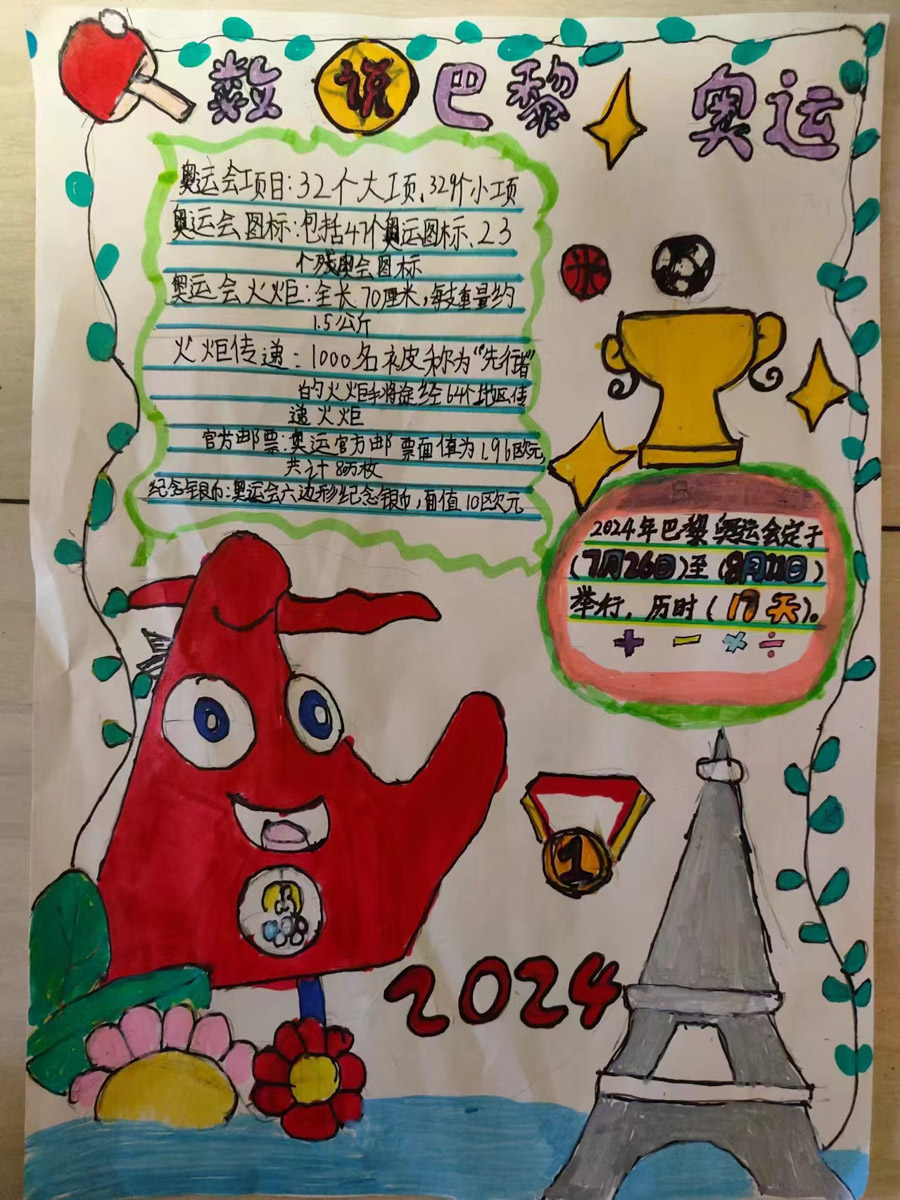 数说巴黎奥运
奥运会项目:32个大项、329个小项
奥运会图标:包括47个奥运图标、23
个残奥会图标
奥运会火炬:全长70厘米,每支重量约
1.5公斤
火炬传递:1000名被称为“先行者”
的火炬手将途经64个地区传
递火炬
官方邮票:奥运官方邮票面值为1.96欧元
共计80万枚
纪念银币:奥运会六边形纪念银币,面值10欧元
2024年巴黎奥运会定于
(7月26日)至(8月11日)
举行,历时(17天)。
+ - × ÷
1
2024